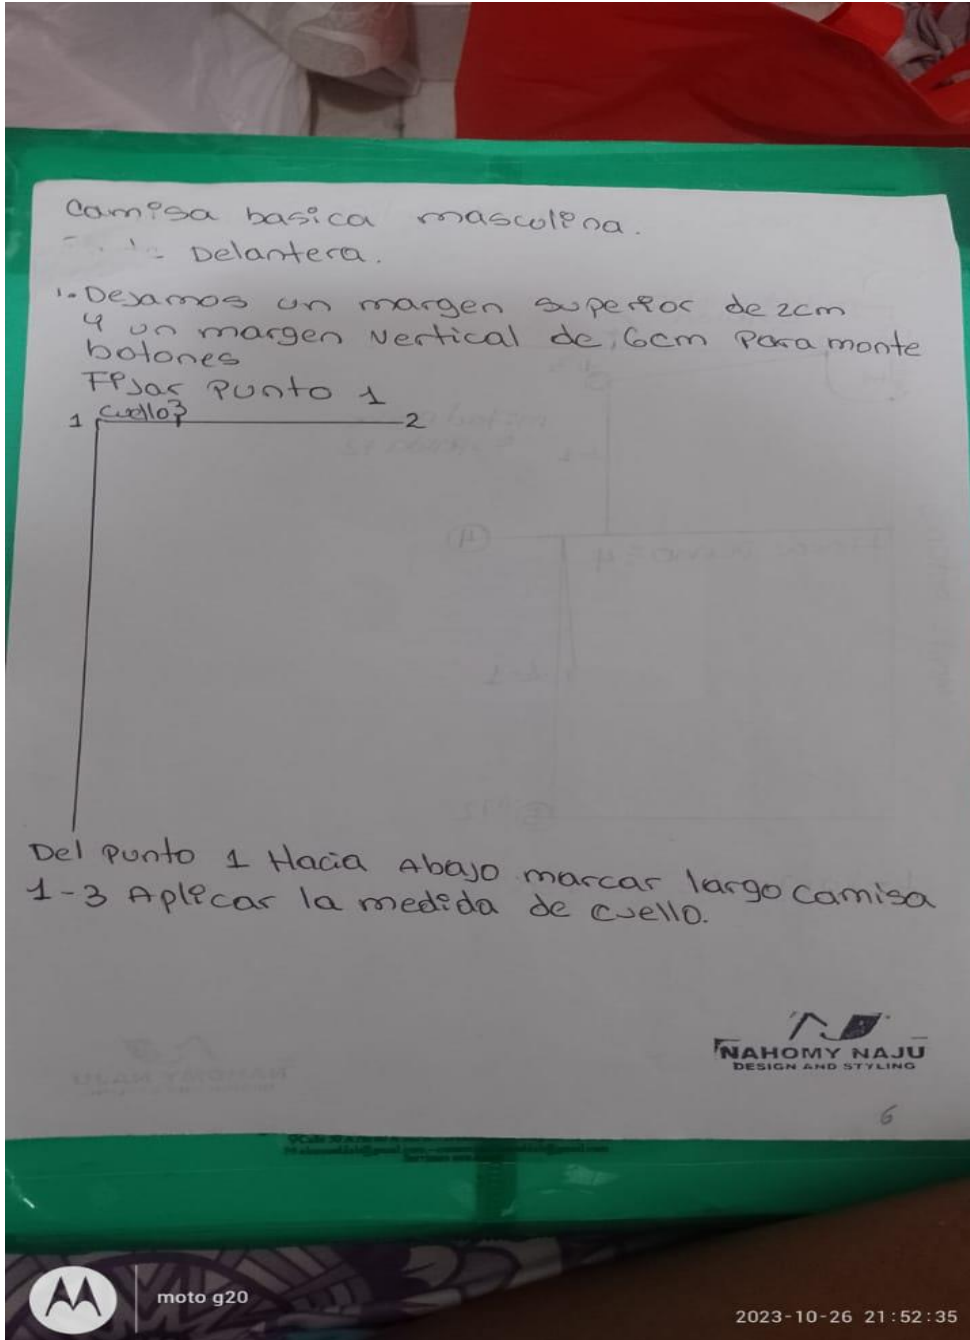 Camisa basica masculina.
Delantera.
1.- Dejamos un margen superior de 2cm
y un margen vertical de 6cm Para monte
botones
Fijar Punto 1
1 cuello 3 2
Del Punto 1 Hacia Abajo marcar largo camisa
1-3 Aplicar la medida de cuello.
NAHOMY NAJU
DESIGN AND STYLING
6
moto g20
2023-10-26 21:52:35